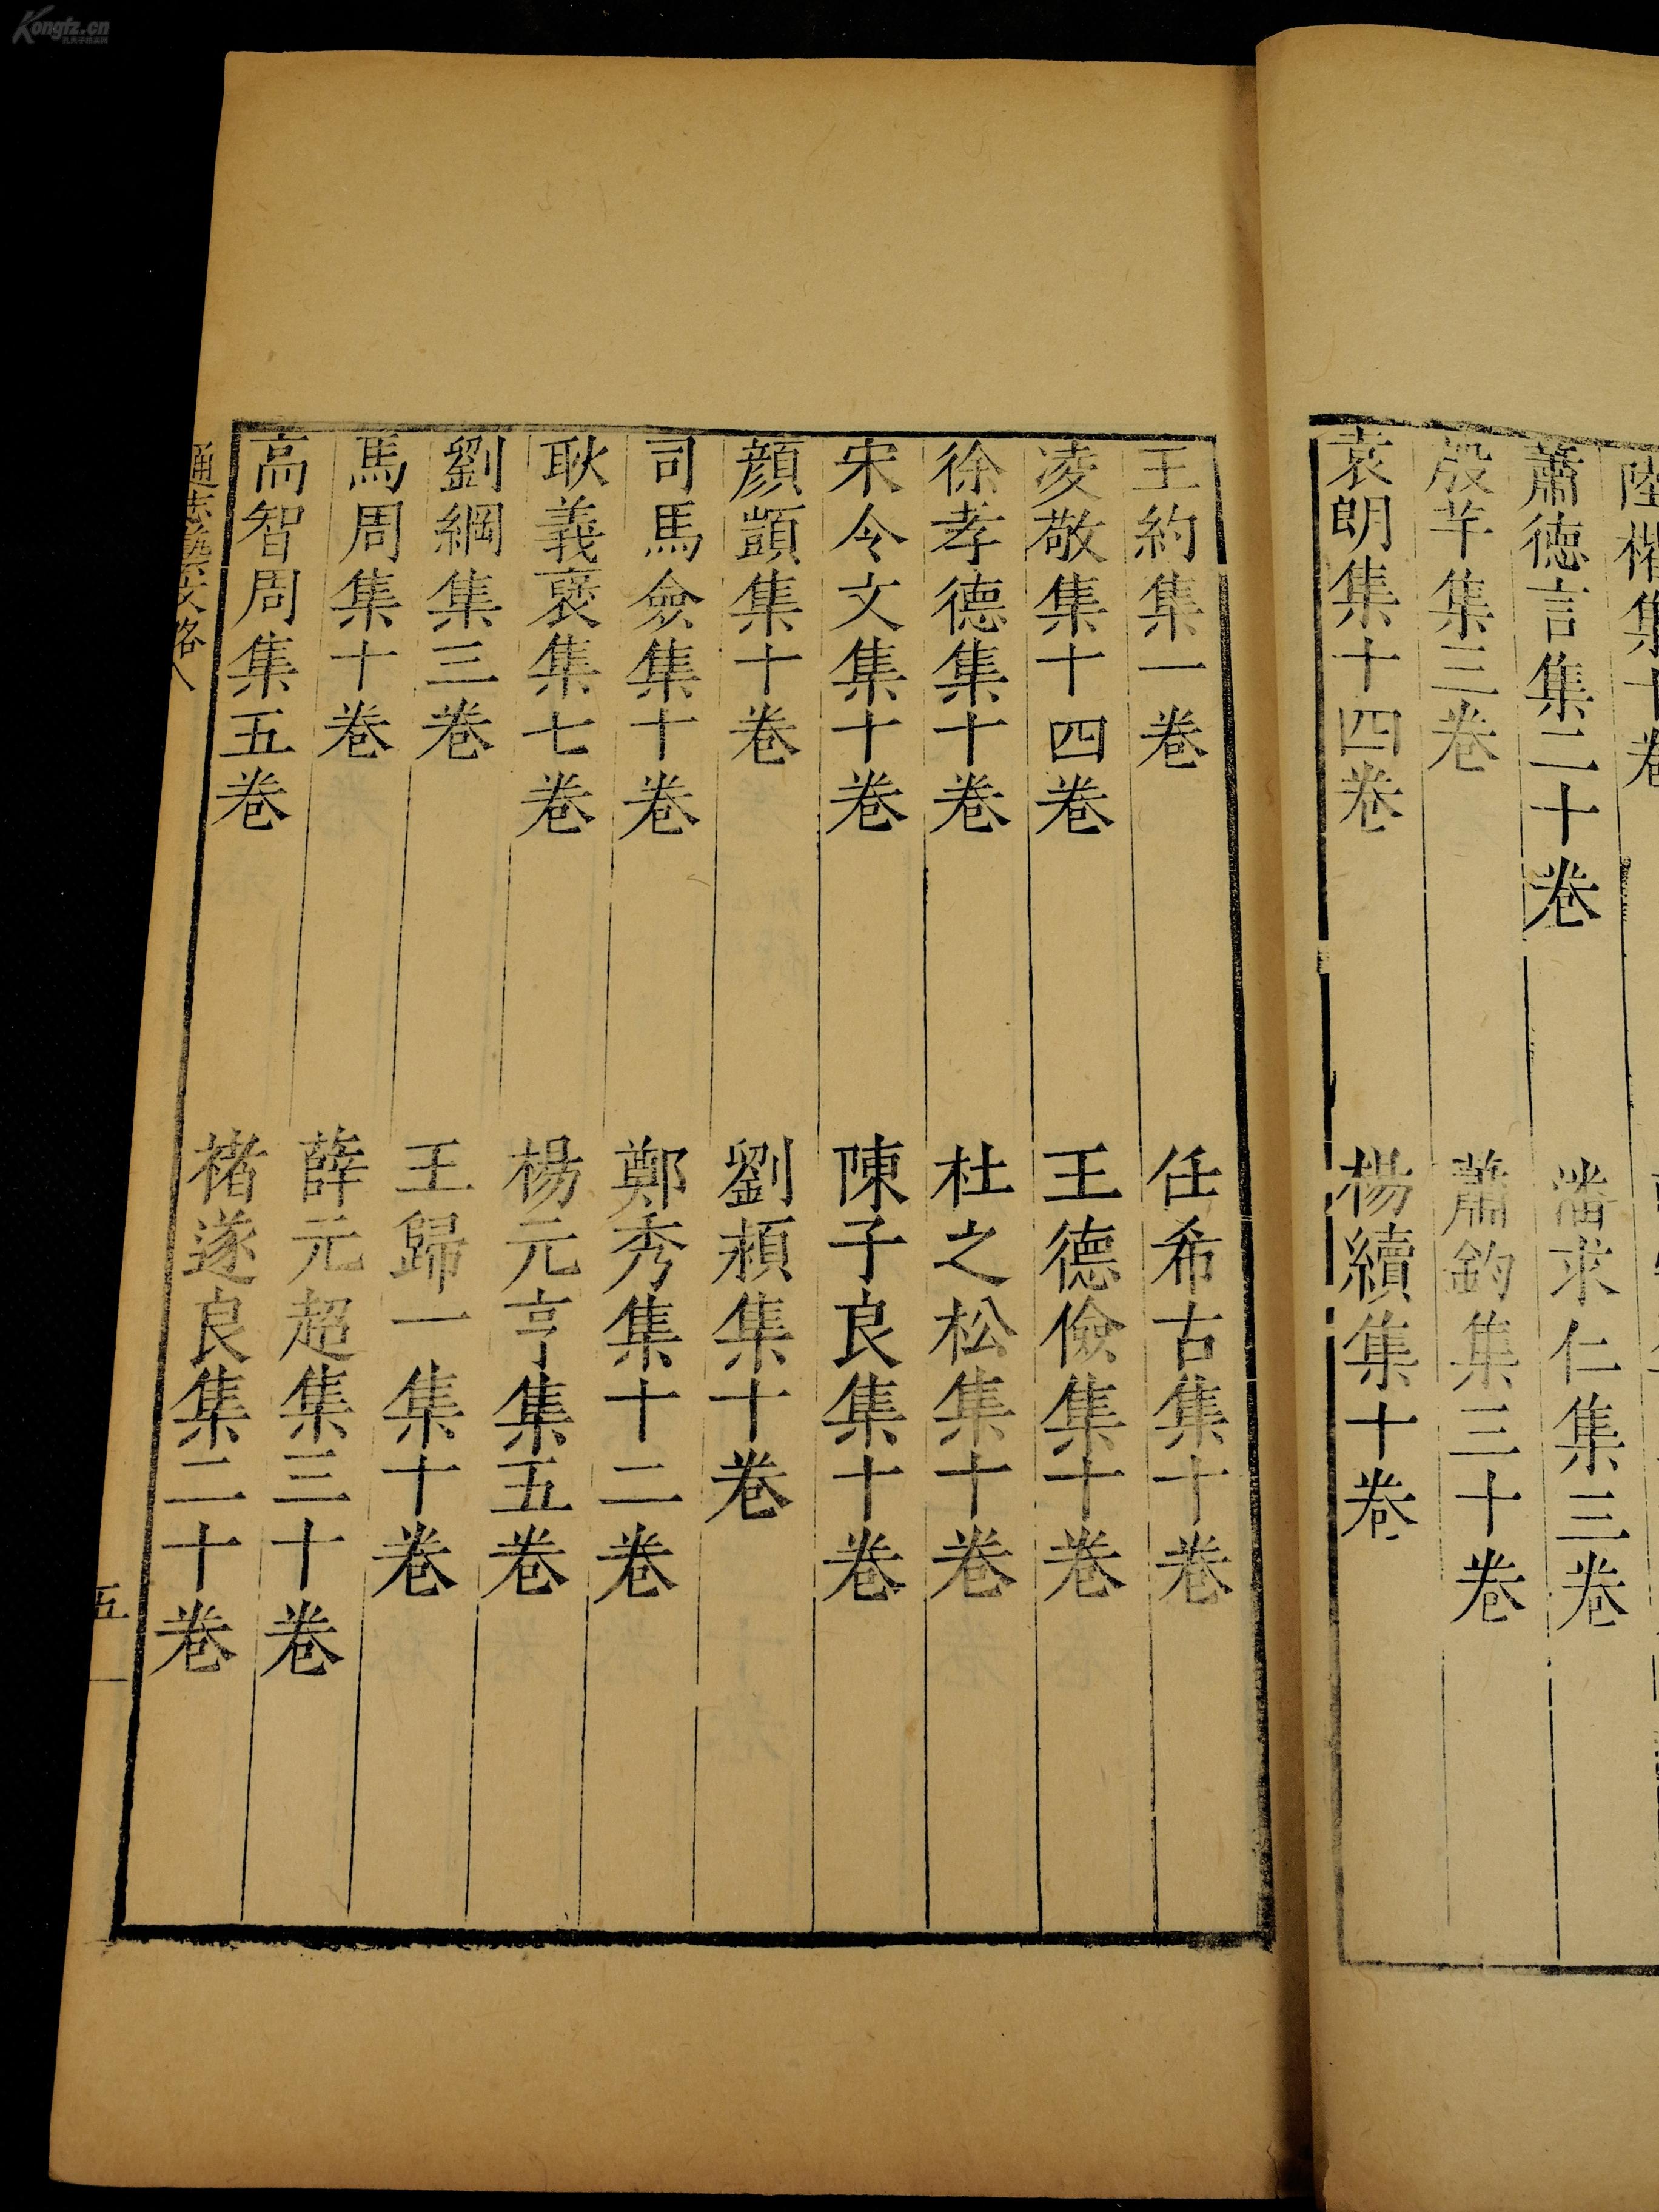 Kongfz.cn
陸楷集十卷
蕭德言集二十卷
潘求仁集三卷
殷芊集三卷
蕭鈞集三十卷
袁朗集十四卷
楊續集十卷
王約集一卷
任希古集十卷
凌敬集十四卷
王德儉集十卷
徐孝德集十卷
杜之松集十卷
宋令文集十卷
陳子良集十卷
顏顗集十卷
劉頰集十卷
司馬僉集十卷
鄭秀集十二卷
耿義褒集七卷
楊元亨集五卷
劉綱集三卷
王歸一集十卷
馬周集十卷
薛元超集三十卷
高智周集五卷
褚遂良集二十卷
通志藝文略八
五